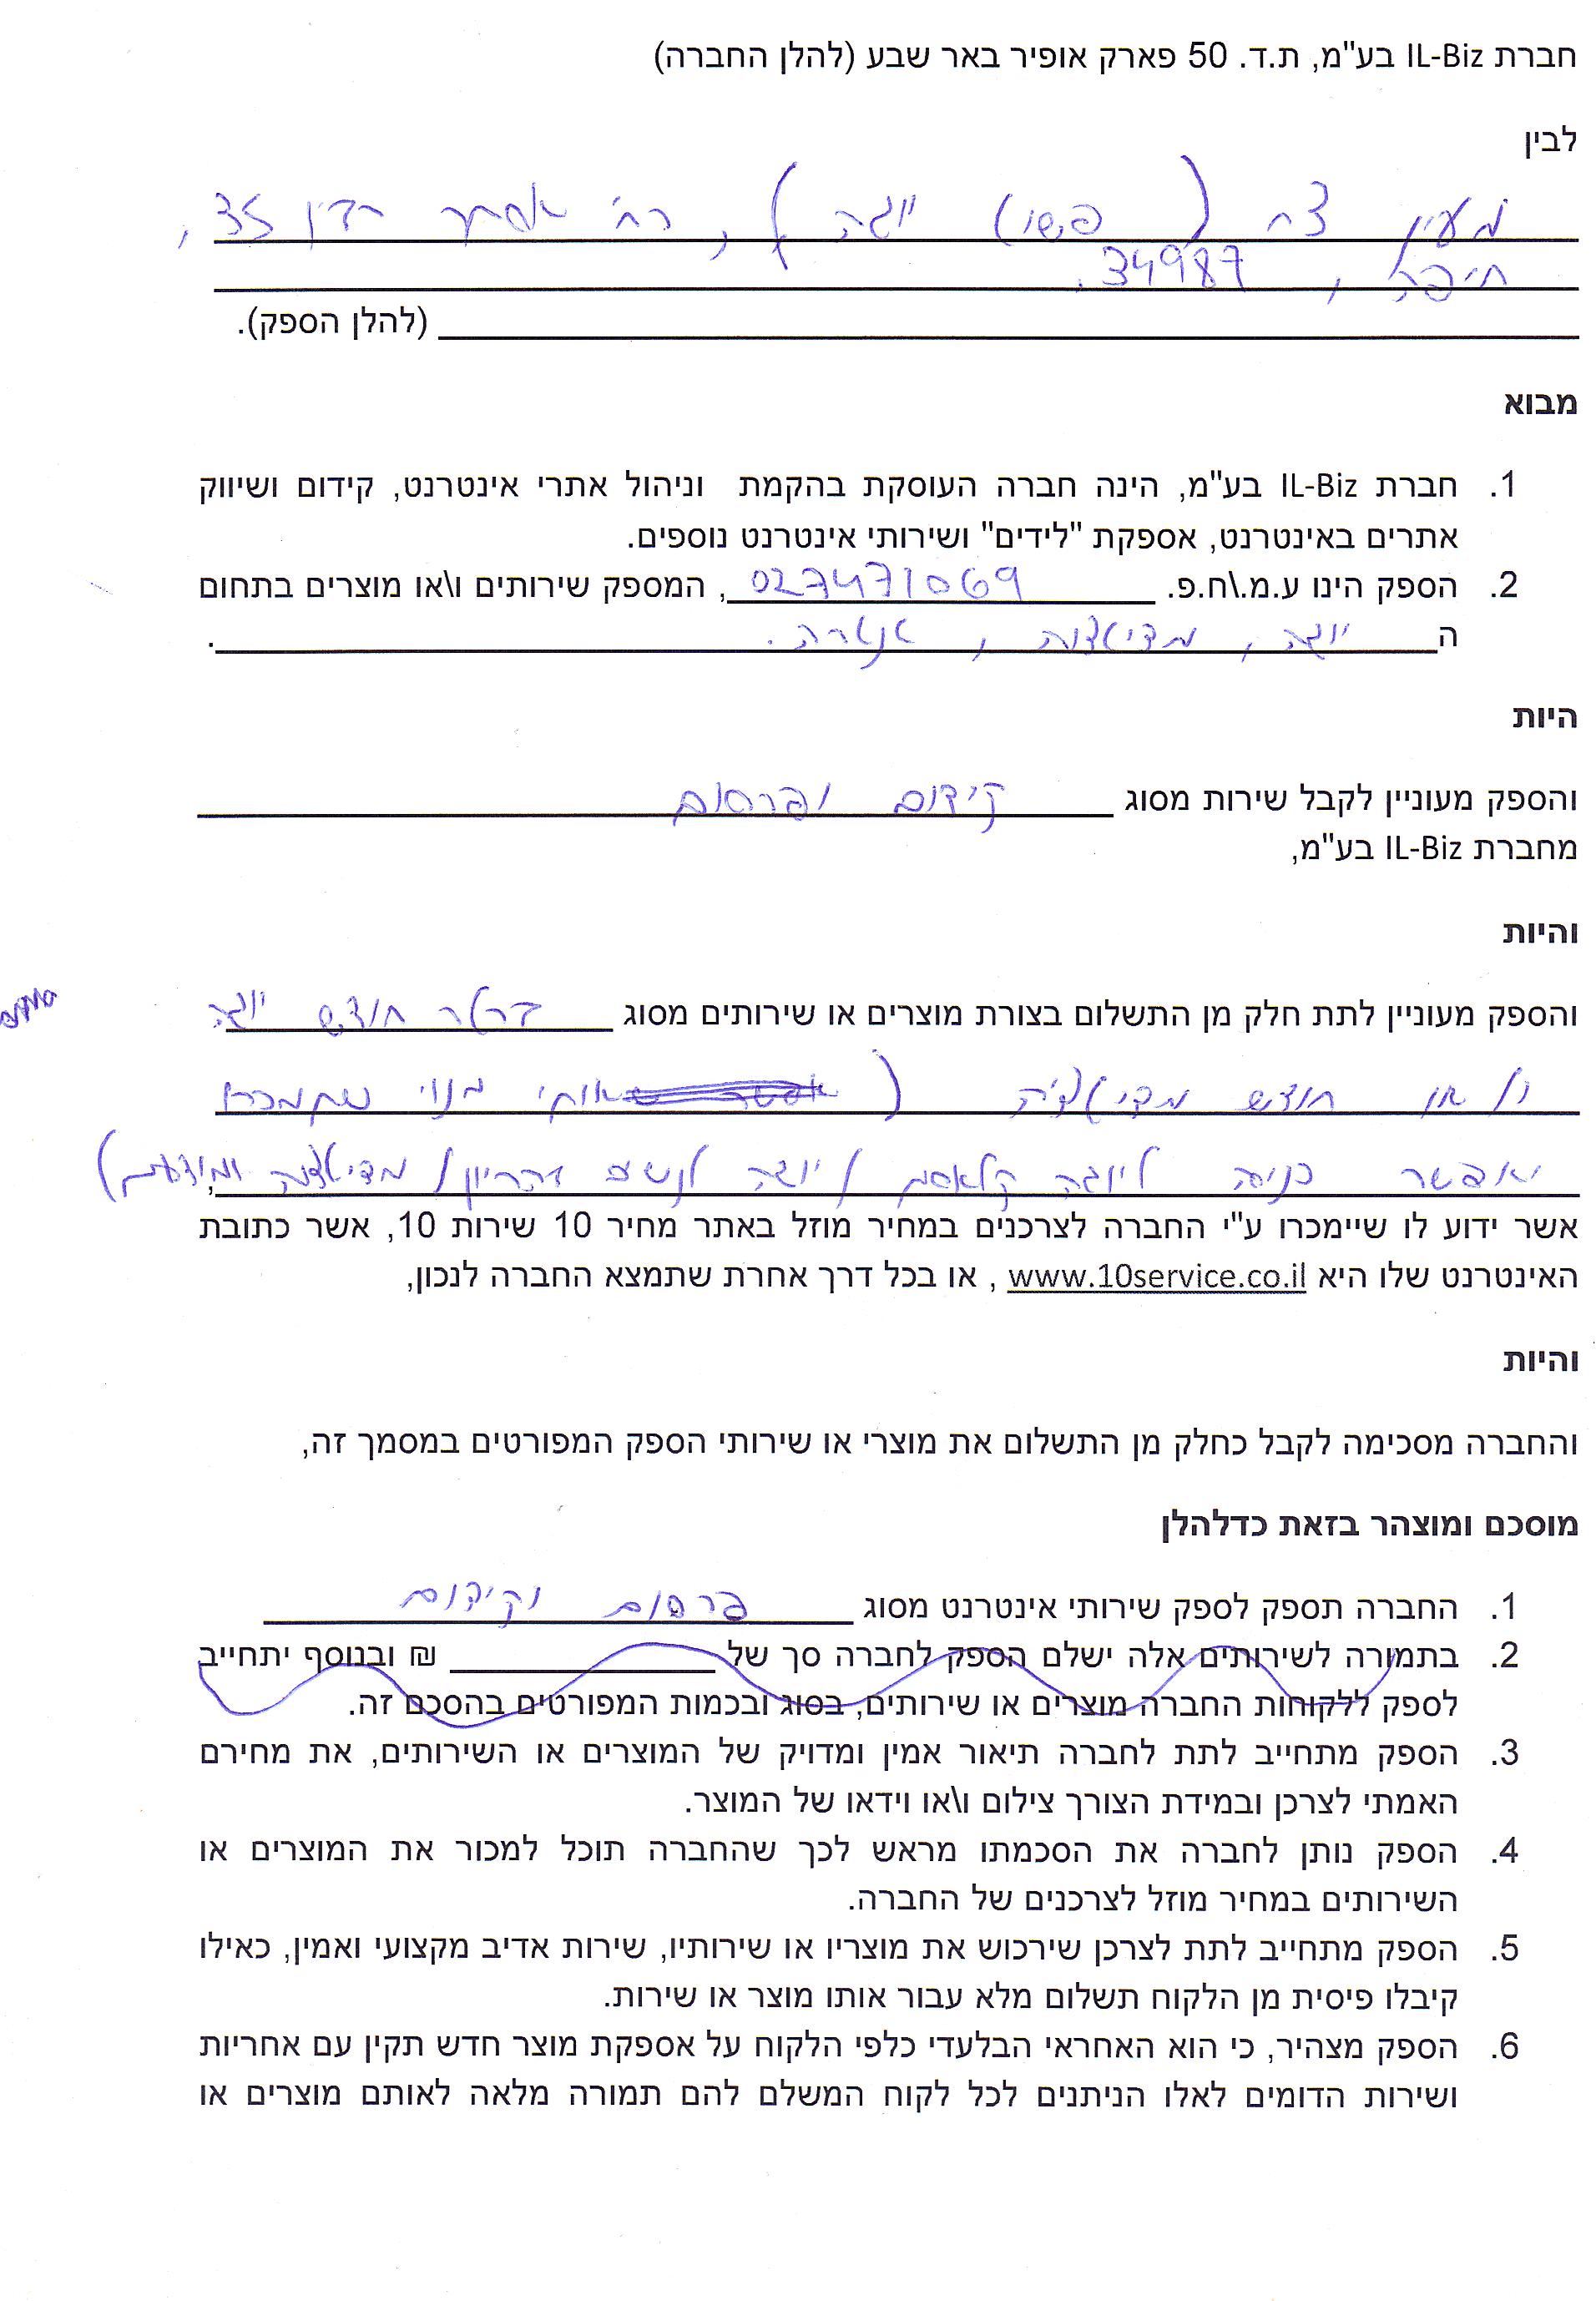 חברת IL-Biz בע"מ, ת.ד. 50 פארק אופיר באר שבע (להלן החברה)
לבין
מעין צח (פשוט יוגה), רח' אסתר רבין 35,
חיפה, 34987.
(להלן הספק).
מבוא
1. חברת IL-Biz בע"מ, הינה חברה העוסקת בהקמת וניהול אתרי אינטרנט, קידום ושיווק
אתרים באינטרנט, אספקת "לידים" ושירותי אינטרנט נוספים.
2. הספק הינו ע.מ.\ח.פ. 027471069, המספק שירותים ו\או מוצרים בתחום
ה יוגה, מדיטציה,
היות
והספק מעוניין לקבל שירות מסוג קידום ופרסום
מחברת IL-Biz בע"מ,
והיות
והספק מעוניין לתת חלק מן התשלום בצורת מוצרים או שירותים מסוג חודש יוגה
ו/או חודש מדיטציה ( מנוי שתמכרו
יאפשר כניסה ליוגה קלאסית / יוגה לנשים בהריון / מדיטציה
אשר ידוע לו שיימכרו ע"י החברה לצרכנים במחיר מוזל באתר מחיר 10 שירות 10, אשר כתובת
האינטרנט שלו היא www.10service.co.il , או בכל דרך אחרת שתמצא החברה לנכון,
והיות
והחברה מסכימה לקבל כחלק מן התשלום את מוצרי או שירותי הספק המפורטים במסמך זה,
מוסכם ומוצהר בזאת כדלהלן
1. החברה תספק לספק שירותי אינטרנט מסוג פרסום וקידום
2. בתמורה לשירותים אלה ישלם הספק לחברה סך של ₪ ובנוסף יתחייב
לספק ללקוחות החברה מוצרים או שירותים, בסוג ובכמות המפורטים בהסכם זה.
3. הספק מתחייב לתת לחברה תיאור אמין ומדויק של המוצרים או השירותים, את מחירם
האמתי לצרכן ובמידת הצורך צילום ו\או וידאו של המוצר.
4. הספק נותן לחברה את הסכמתו מראש לכך שהחברה תוכל למכור את המוצרים או
השירותים במחיר מוזל לצרכנים של החברה.
5. הספק מתחייב לתת לצרכן שירכוש את מוצריו או שירותיו, שירות אדיב מקצועי ואמין, כאילו
קיבלו פיסית מן הלקוח תשלום מלא עבור אותו מוצר או שירות.
6. הספק מצהיר, כי הוא האחראי הבלעדי כלפי הלקוח על אספקת מוצר חדש תקין עם אחריות
ושירות הדומים לאלו הניתנים לכל לקוח המשלם להם תמורה מלאה לאותם מוצרים או